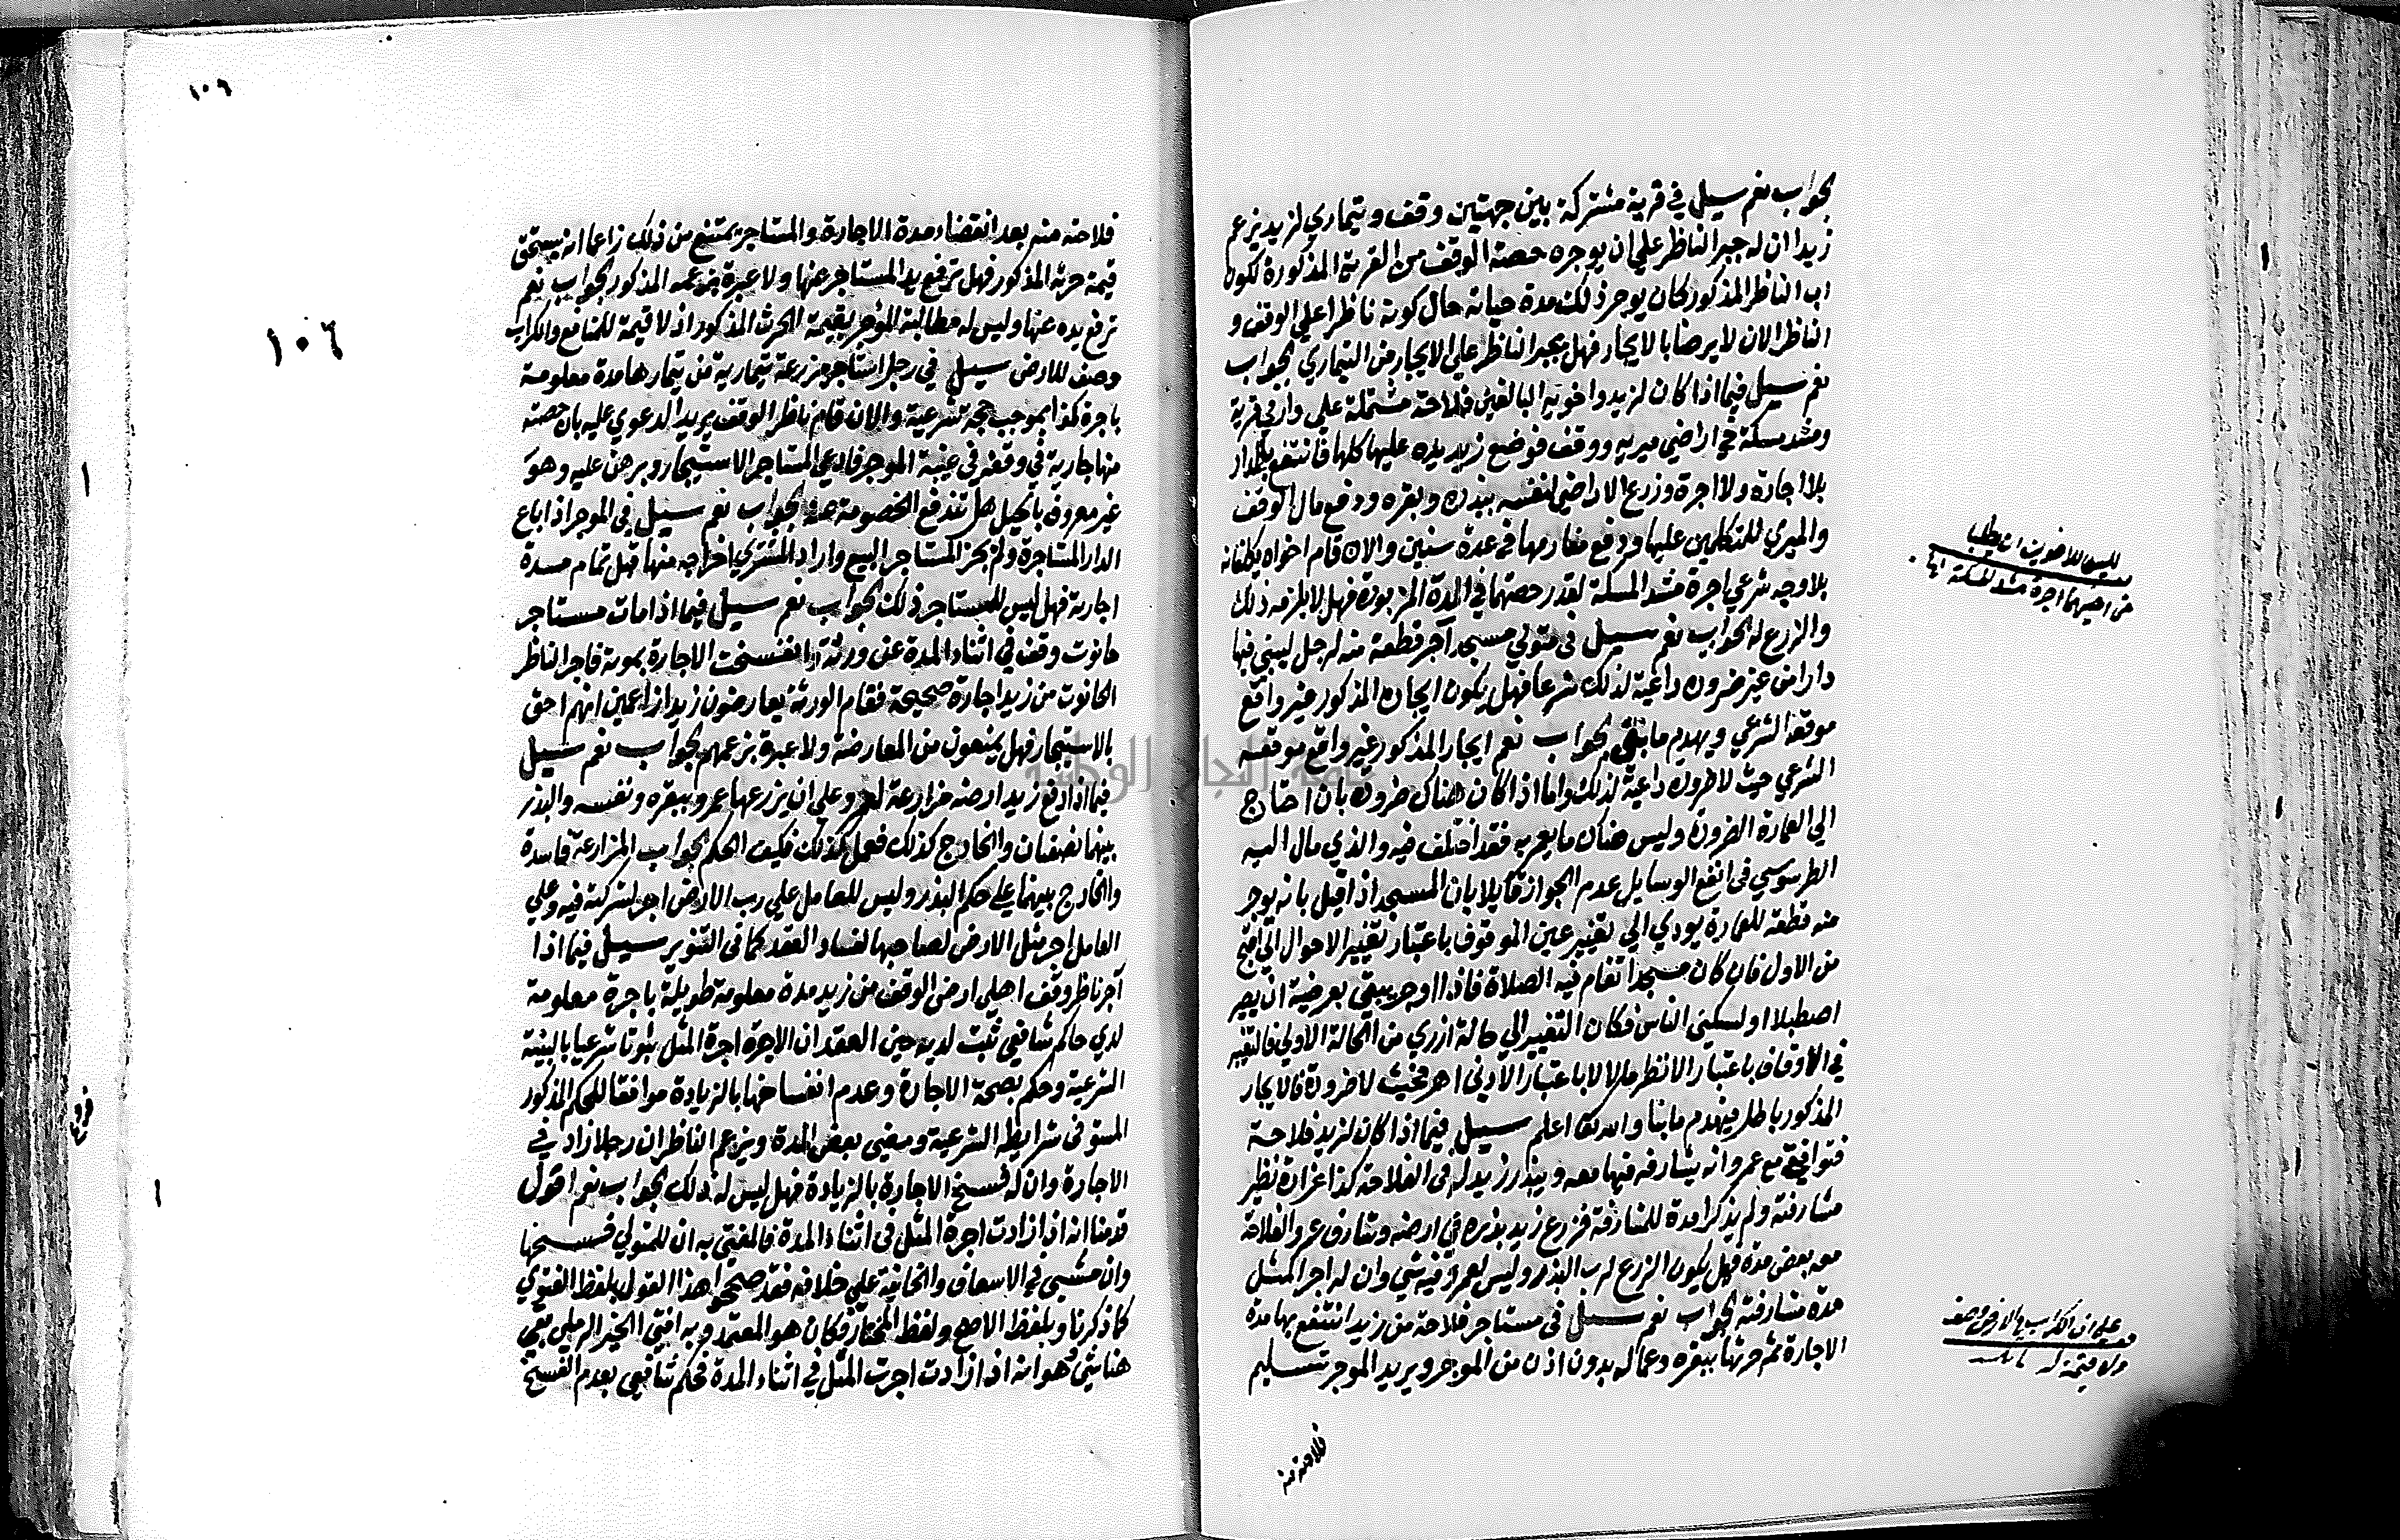 بجواب نعم سيل في قرية مشتركة بين جهتين وقف وتيماري لزيد يزعم
زيد ان له جبر الناظر علي ان يوجره حصة الوقف من القرية المذكورة لكون
اب الناظر المذكور كان يوجر ذلك مدة حياته حال كونه ناظرا علي الوقف و
الناظر الان لا يرضا بالايجار فهل يجبر الناظر علي الايجار من التيماري بجواب
نعم سيل فيما اذا كان لزيد واخويه البالغين فلاحة مشتملة علي دار في قرية
ومشد مسكة في اراضي ميريه ووقف فوضع زيد يده عليها كلها فانتفع بالدار
بلا اجارة ولا اجرة وزرع الاراضي لنفسه ببذره وبقره ودفع مال الوقف
والميري للمتكلمين عليها ودفع مغارمها في عدة سنين والان قام اخواه يكلفانه
بلا وجه شرعي اجرة مشد المسكة لقدر حصتهما في المدة المزبورة فهل لا يلزمه ذلك
والزرع له الجواب نعم سيل في متولي مسجد آجر قطعة منه لرجل ليبني فيها
دارا من غير ضروره داعية لذلك شرعا فهل يكون ايجاره المذكور غير واقع
موقعه الشرعي ويهدم ما بني بجواب نعم ايجار المذكور غير واقع موقعه
الشرعي حيث لا ضروره داعية لذلك واما اذا كان هناك ضرورة بان احتاج
الي العمارة الضرورة وليس هناك ما يعمر به فقد اختلف فيه والذي مال اليه
الطرسوسي في انفع الوسايل عدم الجواز قايلا بان المسجد اذا قيل بانه يوجر
منه قطعة للعمارة يودي الي تغيير عين الموقوف باعتبار تغيير الاحوال الي اقبح
من الاول فان كان مسجدا تقام فيه الصلاة فاذا اوجر يبقي بعرضية ان يصير
اصطبلا او لسكني الناس فكان التغيير الي حالة ازري من الحالة الاولي فالتغيير
في الاوقاف باعتبار الانظر مالا لا باعتبار الادني اهـ فحيث لا ضرورة فالايجار
المذكور باطل فيهدم ما بنا والله تعا اعلم سيل فيما اذا كان لزيد فلاحة
فتوافق مع عمرو انه يشارفه فيها معه ويبذر زيد له في الفلاحة كذا غرارة نظير
مشارفته ولم يذكرا مدة للمشارفة فزرع زيد بذره في ارضه وشارف عمرو الفلاحة
معه بعض مدة فهل يكون الزرع لرب البذر وليس لعمرو فيه شي وان له اجر المثل
مدة مشارفته الجواب نعم سيل في مستاجر فلاحة من زيد انتفع بها مدة
الاجارة ثم حرثها ببقره وعماله بدون اذن من الموجر ويريد الموجر تسليم
فلاحته منه
ليس للاخوين ان يطلب
من اخيهما اجرة مشد المسكة
علي ان الكراب في الارض وصف
ولا قيمة له
١٠٦
١٠٦
فلاحته منه بعد انقضاء مدة الاجارة والمستاجر يمتنع من ذلك زاعما انه يستحق
قيمة حرثه المذكور فهل ترفع يد المستاجر عنها ولا عبرة بزعمه المذكور بجواب نعم
ترفع يده عنها وليس له مطالبة الموجر بقيمة الحرث المذكور اذ لا قيمة للمنافع والكراب
وصف للارض سيل في رجل استاجر مزرعة تيمارية من تيمارها مدة معلومة
باجرة كذا بموجب حجة شرعية والان قام ناظر الوقف يريد الدعوي عليه بان حصته
منها جارية في وقفه في غيبة الموجر فادعي المستاجر الاستيجار وبرهن عليه وهو
غير معروف بالحيل هل تندفع الخصومة عنه بجواب نعم سيل في الموجر اذا باع
الدار المستاجرة ولم يجز المستاجر البيع واراد المشتري اخراجه منها قبل تمام مدة
اجارته فهل ليس للمستاجر ذلك بجواب نعم سيل فيما اذا مات مستاجر
حانوت وقف في اثناء المدة عن ورثة وانفسخت الاجارة بموته فاجر الناظر
الحانوت من زيد اجارة صحيحة فقام الورثة يعارضون زيدا زاعمين انهم احق
بالاستيجار فهل يمنعون من المعارضة ولا عبرة بزعمهم بجواب نعم سيل
فيما اذا دفع زيد ارضه مزارعة لعمرو علي ان يزرعها عمرو ببقره ونفسه والبذر
بينهما نصفان والخارج كذلك فعمل كذلك فكيف الحكم بجواب المزارعة فاسدة
والخارج بينهما علي حكم البذر وليس للعامل علي رب الارض اجر لشركته فيه وعلي
العامل اجر مثل الارض لصاحبها لفساد العقد كما في التنوير سيل فيما اذا
آجر ناظر وقف اهلي ارض الوقف من زيد مدة معلومة طويلة باجرة معلومة
لدي حاكم شافعي ثبت لديه حين العقد ان الاجرة اجرة المثل ثبوتا شرعيا بالبينة
الشرعية وحكم بصحة الاجارة وعدم انفساخها بالزيادة موافقا للحكم المذكور
المستوفي شرايطه الشرعية ومضي بعض المدة ويزعم الناظر ان رجلا زاد في
الاجارة وان له فسخ الاجارة بالزيادة فهل ليس له ذلك بجواب نعم اقول
قدمنا انه اذا زادت اجرة المثل في اثناء المدة فالمفتي به ان للمتولي فسخها
وان مشي في الاسعاف والخانية علي خلافه فقد صححوا هذا القول بلفظ الفتوي
كما ذكرنا وبلفظ الاصح ولفظ المختار فكان هو المعتمد وبه افتي الخير الرملي بقي
هنا شي وهو انه اذا زادت اجرت المثل في اثناء المدة فحكم شافعي بعدم الفسخ